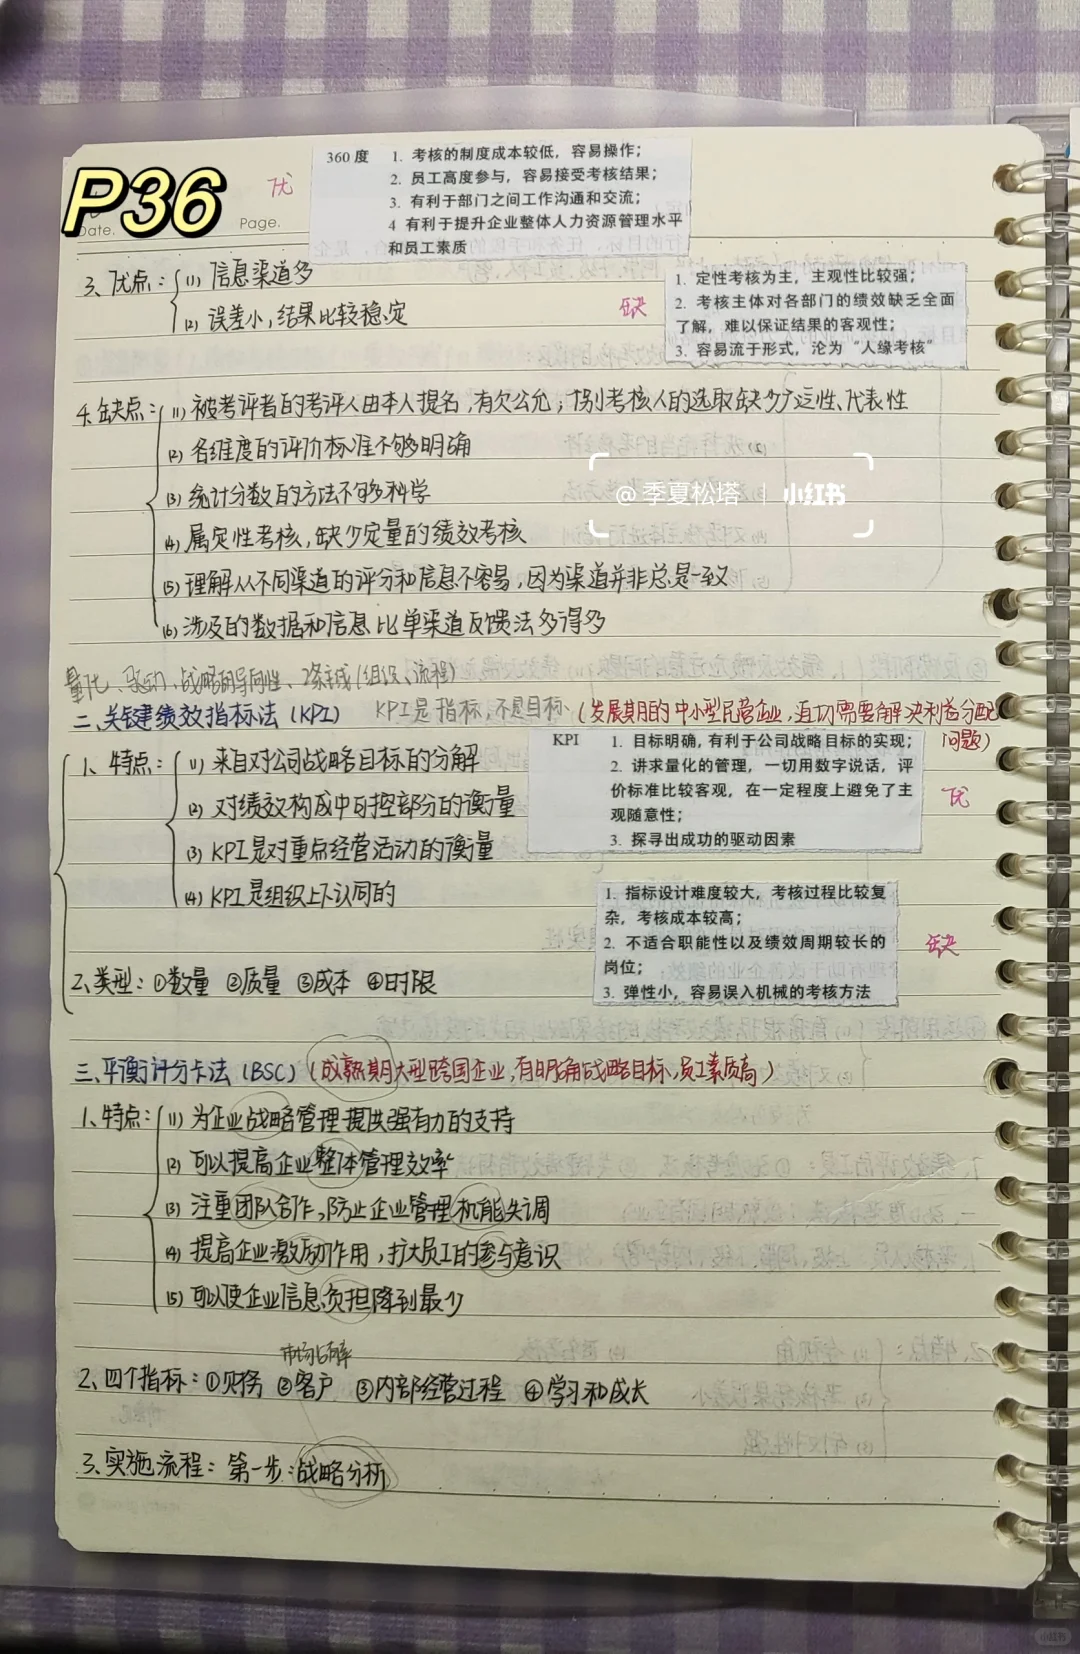 P36
Date.
Page.
优
360度 1. 考核的制度成本较低，容易操作；
2. 员工高度参与，容易接受考核结果；
3. 有利于部门之间工作沟通和交流；
4 有利于提升企业整体人力资源管理水平
和员工素质
3、优点：(1) 信息渠道多
(2) 误差小，结果比较稳定
缺
1. 定性考核为主，主观性比较强；
2. 考核主体对各部门的绩效缺乏全面
了解，难以保证结果的客观性；
3. 容易流于形式，沦为“人缘考核”
4.缺点：(1) 被考评者的考评人由本人提名，有欠公允；个别考核人的选取缺少广泛性、代表性
(2) 各维度的评价标准不够明确
(3) 统计分数的方法不够科学
(4) 属定性考核，缺少定量的绩效考核
(5) 理解从不同渠道的评分和信息不容易，因为渠道并非总是一致
(6) 涉及的数据和信息比单渠道反馈法多得多
@季夏松塔 | 小红书
量化、驱动、战略的导向性、2条线(组织、流程)
二、关键绩效指标法（KPI） KPI是指标，不是目标（发展期的中小型民营企业，迫切需要解决利益分配
问题）
KPI 1. 目标明确，有利于公司战略目标的实现；
2. 讲求量化的管理，一切用数字说话，评
价标准比较客观，在一定程度上避免了主
观随意性；
3. 探寻出成功的驱动因素
优
1、特点：(1) 来自对公司战略目标的分解
(2) 对绩效构成中可控部分的衡量
(3) KPI是对重点经营活动的衡量
(4) KPI是组织上下认同的
1. 指标设计难度较大，考核过程比较复
杂，考核成本较高；
2. 不适合职能性以及绩效周期较长的
岗位；
3. 弹性小，容易误入机械的考核方法
缺
2、类型：①数量 ②质量 ③成本 ④时限
三、平衡评分卡法（BSC）（成熟期大型跨国企业，有明确战略目标，员工素质高）
1、特点：(1) 为企业战略管理提供强有力的支持
(2) 可以提高企业整体管理效率
(3) 注重团队合作，防止企业管理机能失调
(4) 提高企业激励作用，扩大员工的参与意识
(5) 可以使企业信息负担降到最少
市场占有率
2、四个指标：①财务 ②客户 ③内部经营过程 ④学习和成长
3、实施流程：第一步：战略分析
小红书